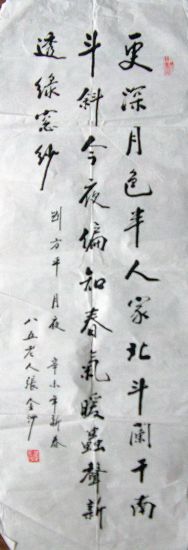 更深月色半人家北斗闌干南
斗斜今夜偏知春氣暖蟲聲新
透綠窓紗
劉方平月夜 辛未年新春
八五老人張金沙